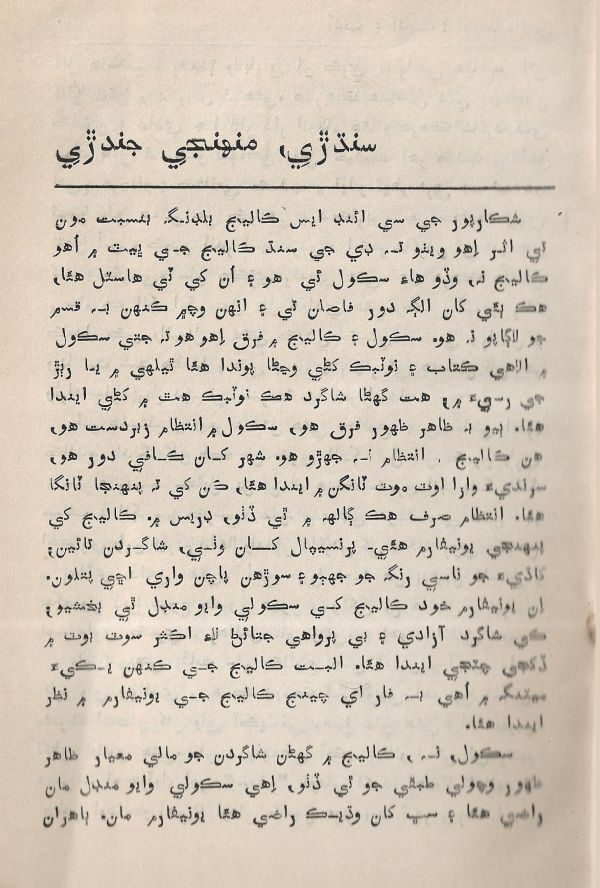 سنڌڙي، منهنجي جندڙي
شڪارپور جي سي ائنڊ ايس ڪاليج بلڊنگ بنسبت مون
تي اثر اِهو ويٺو تہ ڊي جي سنڌ ڪاليج جي ڀيٽ ۾ اُهو
ڪاليج نہ، وڏو هاءِ سڪول ئي هو ۽ اُن کي ٽي هاسٽل هئا،
هڪ ٻئي کان الڳ دور فاصلن تي ۽ انهن وچ۾ ڪنهن بہ قسم
جو لاڳاپو نہ هو. سڪول ۽ ڪاليج ۾ فرق اِهو هو تہ جتي سڪول
۾ الاهي ڪتاب ۽ نوٽبڪ کڻي وڃڻا پوندا هئا ٿيلهي ۾ يا رٻڙ
جي رسيءَ ۾، هت گهڻا شاگرد هڪ نوٽبڪ هٿ ۾ کڻي ايندا
هئا. ٻيو بہ ظاهر ظهور فرق هو، سڪول ۾ انتظام زبردست هو،
هن ڪاليج ۾ انتظام نہ جهڙو هو. شهر کان ڪافي دور هو،
سرنديءَ وارا اوٽ موٽ ٽانگن ۾ ايندا هئا، ڪن کي تہ پنهنجا ٽانگا
هئا. انتظام صرف هڪ ڳالهہ ۾ ئي ڏٺو، ڊريس ۾. ڪاليج کي
پنهنجي يونيفارم هئي- پرنسيپال کان وٺي، شاگردن تائين،
کاڌيءَ جو ناسي رنگ جو جهٻو ۽ سوڙهن پاچن واري اڇي پتلون.
ان يونيفارم خود ڪاليج کي سڪولي وايو منڊل ٿي بخشيو،
ڪي شاگرد آزادي ۽ بي پرواهي جتائڻ لاءِ اڪثر سوٽ بوٽ ۾
ڏڪجي چٽجي ايندا هئا. البت ڪاليج جي ڪنهن يڪيءَ
ميٽنگ ۾ اُهي بہ فار اي چينج ڪاليج جي يونيفارم ۾ نظر
ايندا هئا.
سڪول، نہ، ڪاليج ۾ گهڻن شاگردن جو مالي معيار ظاهر
ظهور وچولي طبقي جو ئي ڏٺو، اِهي سڪولي وايو منڊل مان
راضي هئا ۽ سڀ کان وڌيڪ راضي هئا يونيفارم مان. ٻاهران